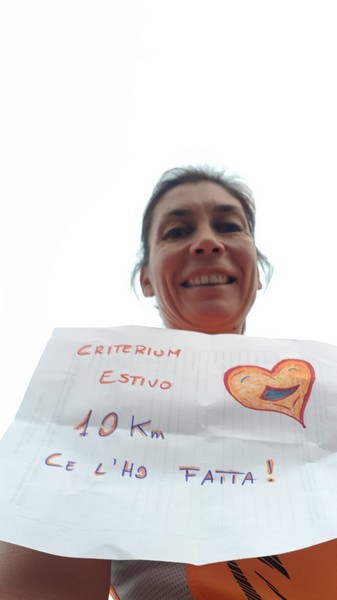 CRITERIUM
ESTIVO
10 Km
CE L'HO FATTA!